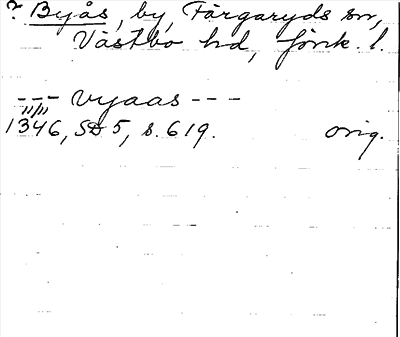 ? Byås, by, Färgaryds sn,
Västbo hd, Jönk. l.
--- vyaas ---
11/11
1346, SD 5, s. 619. orig.